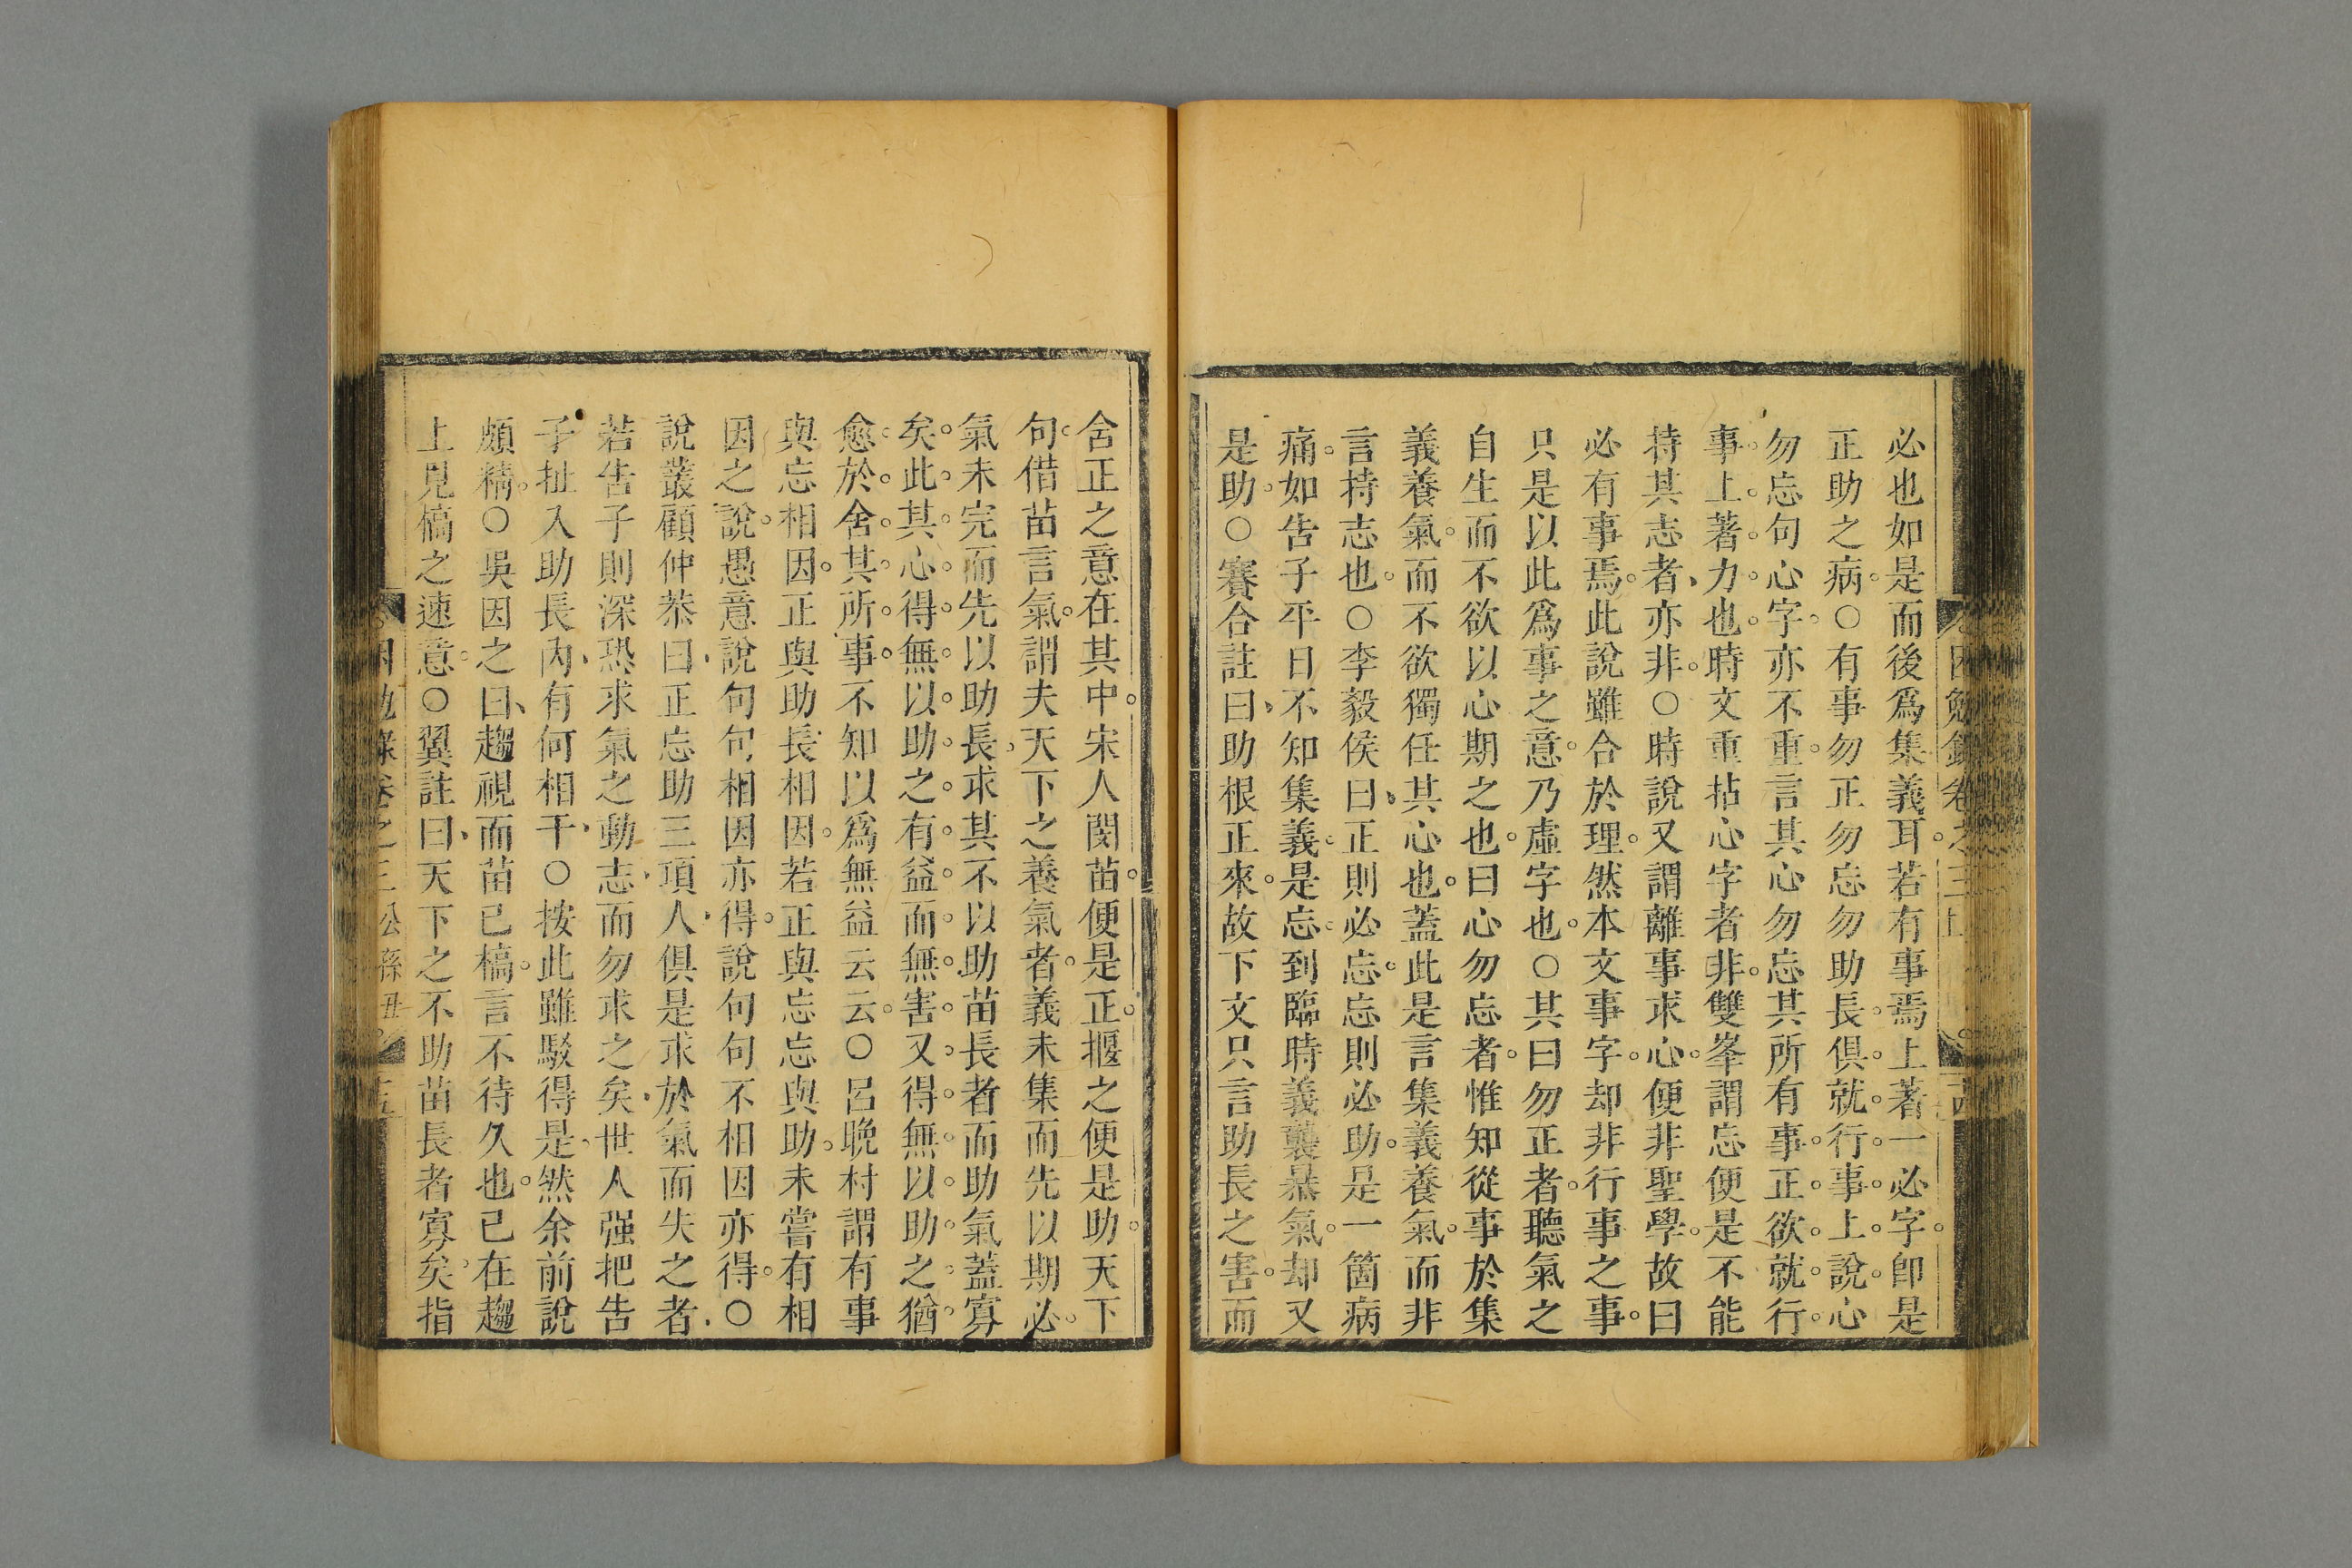 必也如是而後爲集義耳若有事焉上著一必字卽是
正助之病○有事勿正勿忘勿助長俱就行事上說心
勿忘句心字亦不重言其心勿忘其所有事正欲就行
事上著力也時文重拈心字者非雙峯謂忘便是不能
持其志者亦非○時說又謂離事求心便非聖學故曰
必有事焉此說雖合於理然本文事字却非行事之事
只是以此爲事之意乃虛字也○其曰勿正者聽氣之
自生而不欲以心期之也曰心勿忘者惟知從事於集
義養氣而不欲獨任其心也蓋此是言集義養氣而非
言持志也○李毅侯曰正則必忘忘則必助是一箇病
痛如告子平日不知集義是忘到臨時義襲暴氣却又
是助○賽合註曰助根正來故下文只言助長之害而
舍正之意在其中宋人閔苗便是正揠之便是助天下
句借苗言氣謂夫天下之養氣者義未集而先以期必
氣未完而先以助長求其不以助苗長者而助氣蓋寡
矣此其心得無以助之有益而無害又得無以助之猶
愈於舍其所事不知以爲無益云云○呂晚村謂有事
與忘相因正與助長相因若正與忘忘與助未嘗有相
因之說愚意說句句相因亦得說句句不相因亦得○
說叢顧仲恭曰正忘助三項人俱是求於氣而失之者
若告子則深恐求氣之動志而勿求之矣世人强把告
子扯入助長內有何相干○按此雖駁得是然余前說
頗精○吳因之曰趨視而苗已槁言不待久也已在趨
上見槁之速意○翼註曰天下之不助苗長者寡矣指
困勉錄卷之三 公孫丑